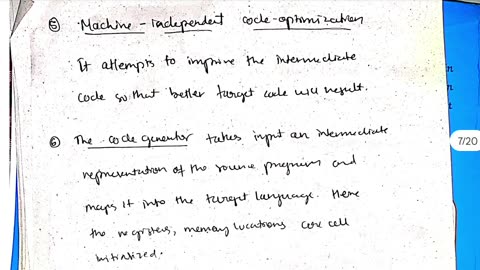 ⑤ Machine-independent code-optimization
It attempts to improve the intermediate
code so that better target code will result.
⑥ The code generator takes input an intermediate
representation of the source program and
maps it into the target language. Here
the registers, memory locations are cell
initialized.
7/20